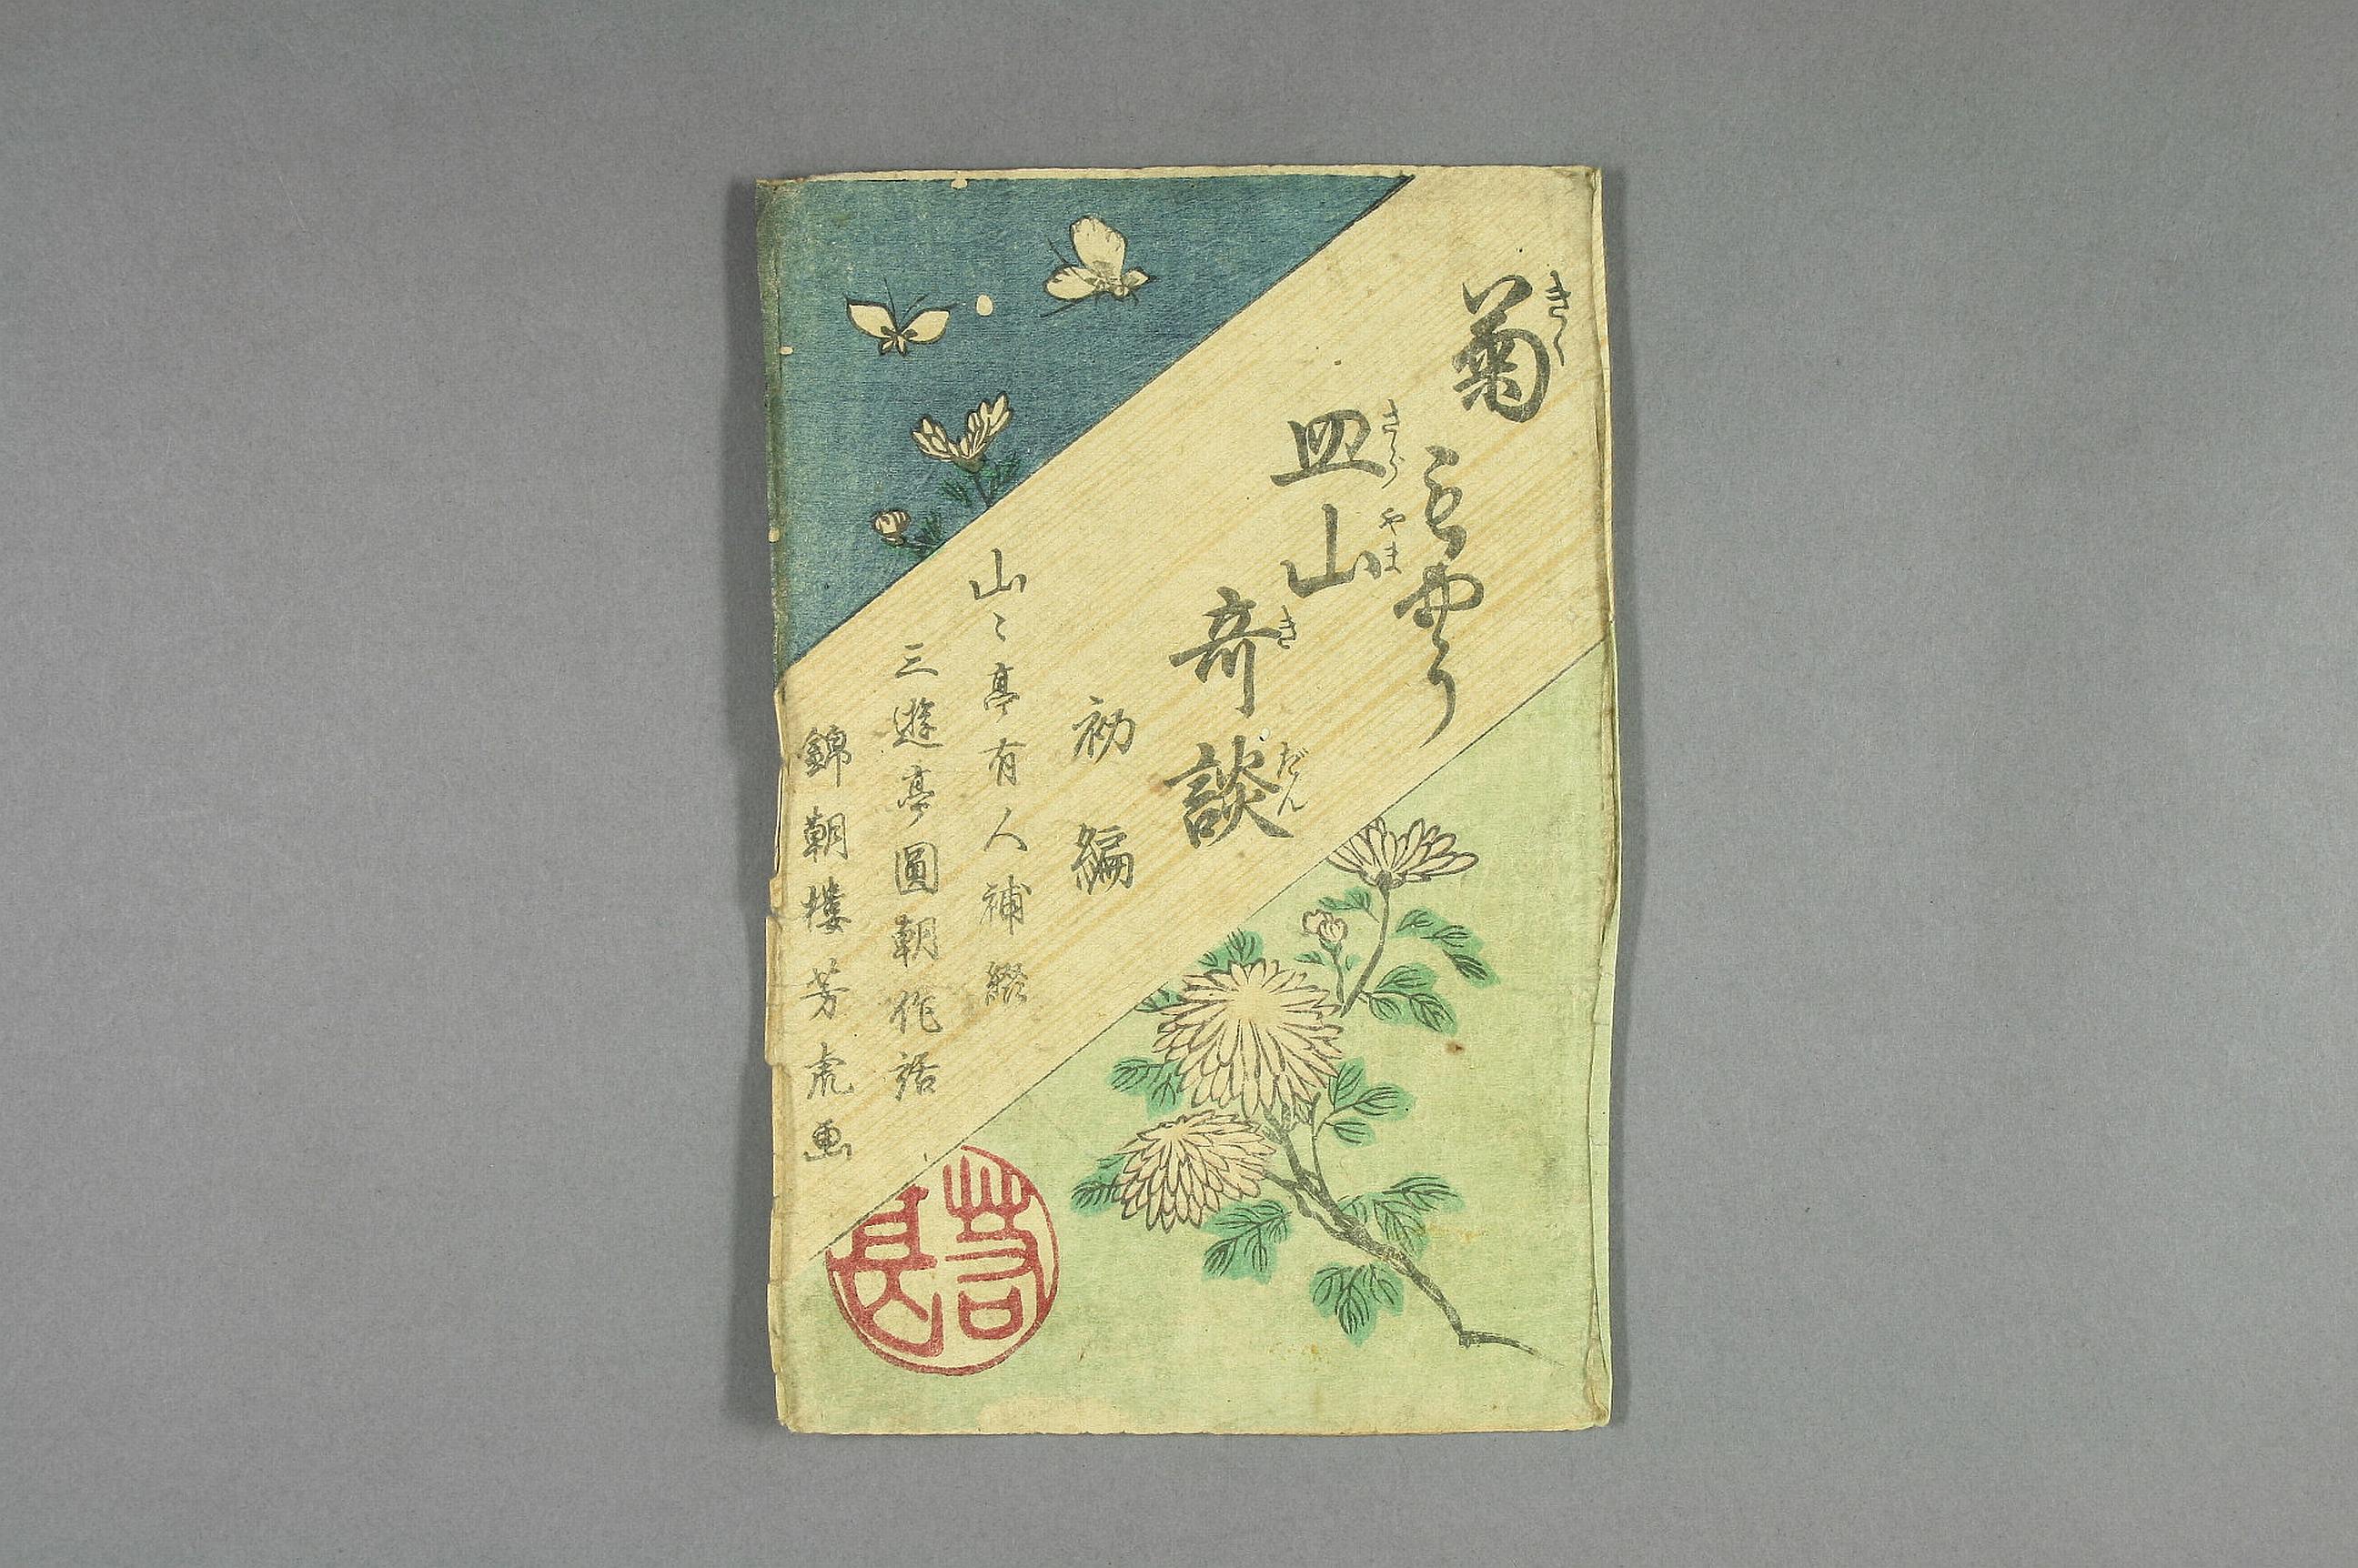 菊
きく
もやう
皿山
さらやま
奇談
きだん
初編
山〻亭有人補綴
三遊亭圓朝作話
錦朝樓芳虎画
若甚